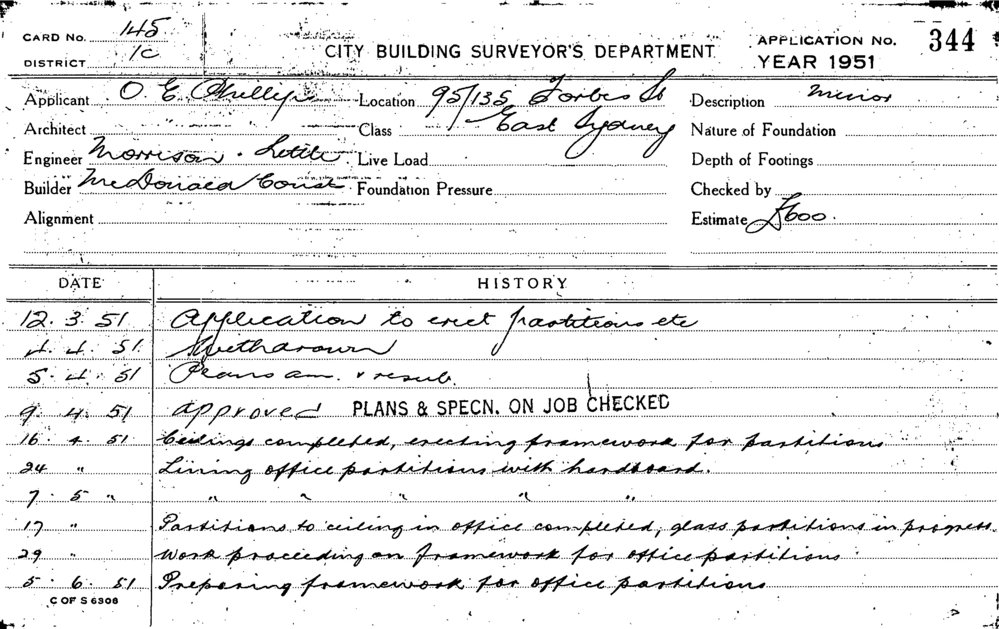 CARD No. 145
DISTRICT 1C
CITY BUILDING SURVEYOR'S DEPARTMENT
APPLICATION No. 344
YEAR 1951
Applicant O E Phillips Location 95/135 Forbes St Description Minor
Architect Class East Sydney Nature of Foundation
Engineer Morrison & Little Live Load Depth of Footings
Builder McDonald Const Foundation Pressure Checked by
Alignment Estimate £600.
DATE HISTORY
12. 3. 51 Application to erect partitions etc
4. 4. 51. Withdrawn
5. 4. 51 Plans am. & resub.
9. 4. 51 approved PLANS & SPECN. ON JOB CHECKED
16. 4. 51 Ceilings completed, erecting framework for partitions
24 " Lining office partitions with hardboard.
7. 5 " " " " " "
17 " Partitions to ceiling in office completed, glass partitions in progress.
29 " Work proceeding on framework for office partitions
5. 6. 51 Preparing framework for office partitions
C OF S 6306